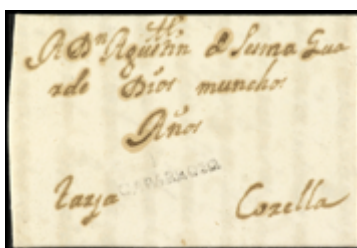 A Dn Agustin de Suma Gua
rde Dios munchos
Años
CAPARROSO
Corella